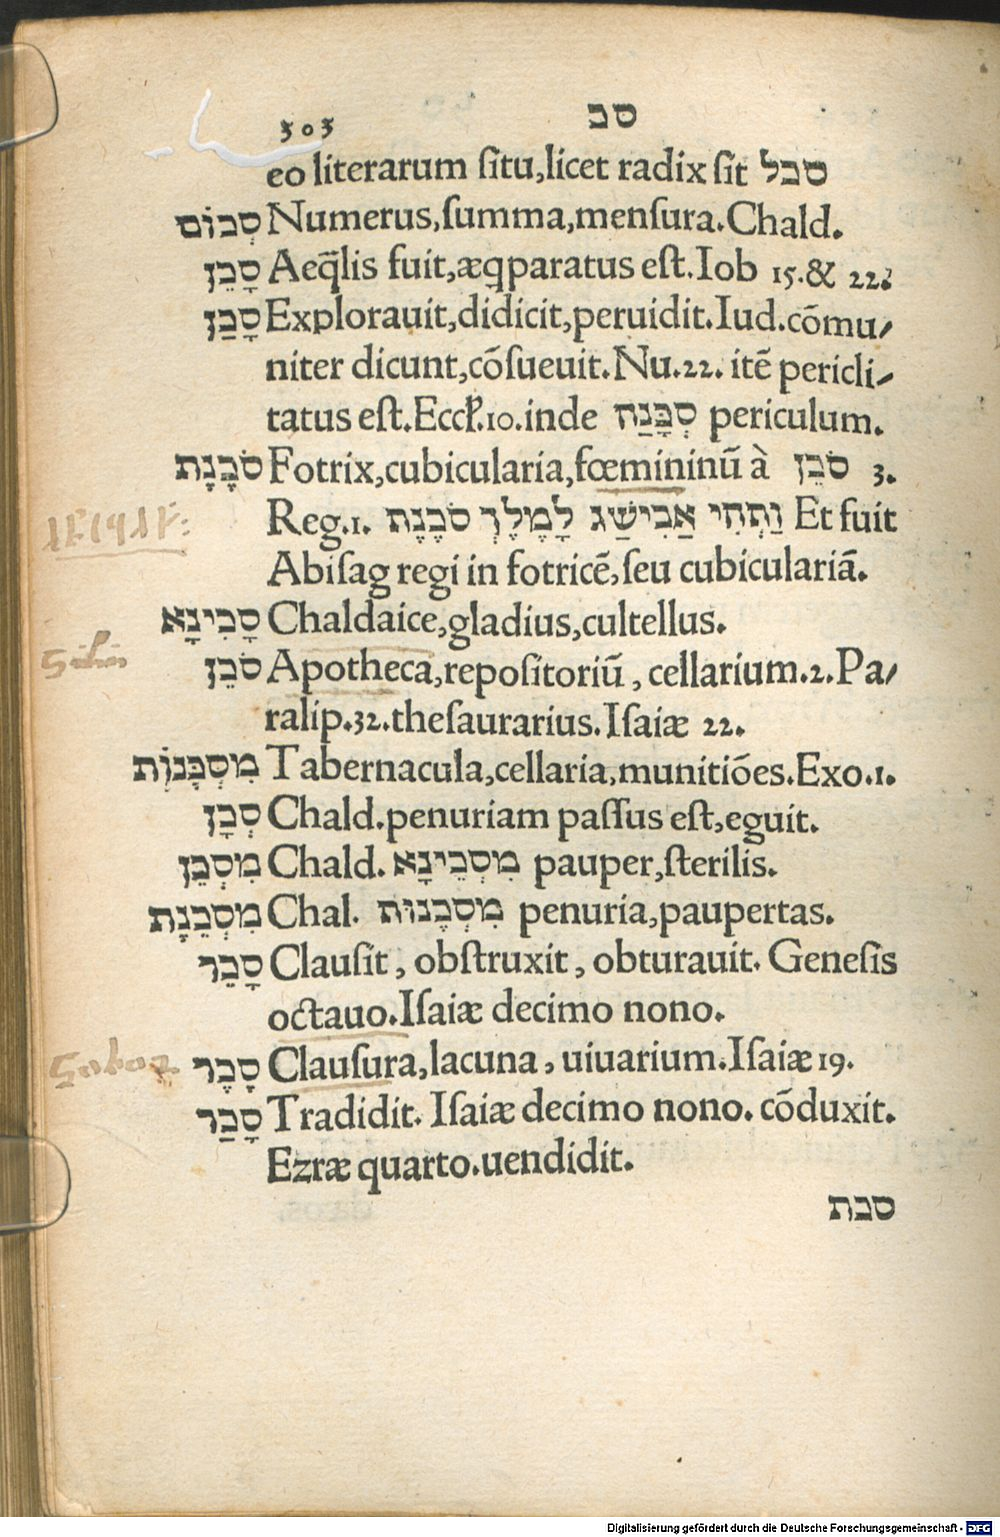 303 סב
eo literarum situ,licet radix sit סבל
סְכוֹם Numerus,summa,mensura.Chald.
סָכֵן Aeq̃lis fuit,æqparatus est.Iob 15.& 22.
סָכַן Explorauit,didicit,peruidit.Iud.cōmu/
niter dicunt,cōsueuit.Nu.22. itē pericli/
tatus est.Eccl.10.inde סְכָּנַה periculum.
סֹכָנָת Fotrix,cubicularia,fœmininū à סֹכֵן 3.
Reg.1. וַתְּהִי אַבִישַׁג לָמֶלֶךְ סֹכֶנֶת Et fuit
Abisag regi in fotricē,seu cubiculariā.
סָכִינָא Chaldaice,gladius,cultellus.
סֹכֵן Apotheca,repositoriū, cellarium.2.Pa/
ralip.32.thesaurarius.Isaiæ 22.
מִסְכָּנוֹת Tabernacula,cellaria,munitiōes.Exo.1.
סְכָן Chald.penuriam passus est,eguit.
מִסְכֵּן Chald. מִסְכֵינָא pauper,sterilis.
מִסְכֵנָת Chal. מִסְכֶנוּת penuria,paupertas.
סָכֵר Clausit, obstruxit, obturauit. Genesis
octauo.Isaiæ decimo nono.
סָכֶר Clausura,lacuna, uiuarium.Isaiæ 19.
סָכַר Tradidit. Isaiæ decimo nono. cōduxit.
Ezræ quarto.uendidit.
סבת
Digitalisierung gefördert durch die Deutsche Forschungsgemeinschaft - DFG